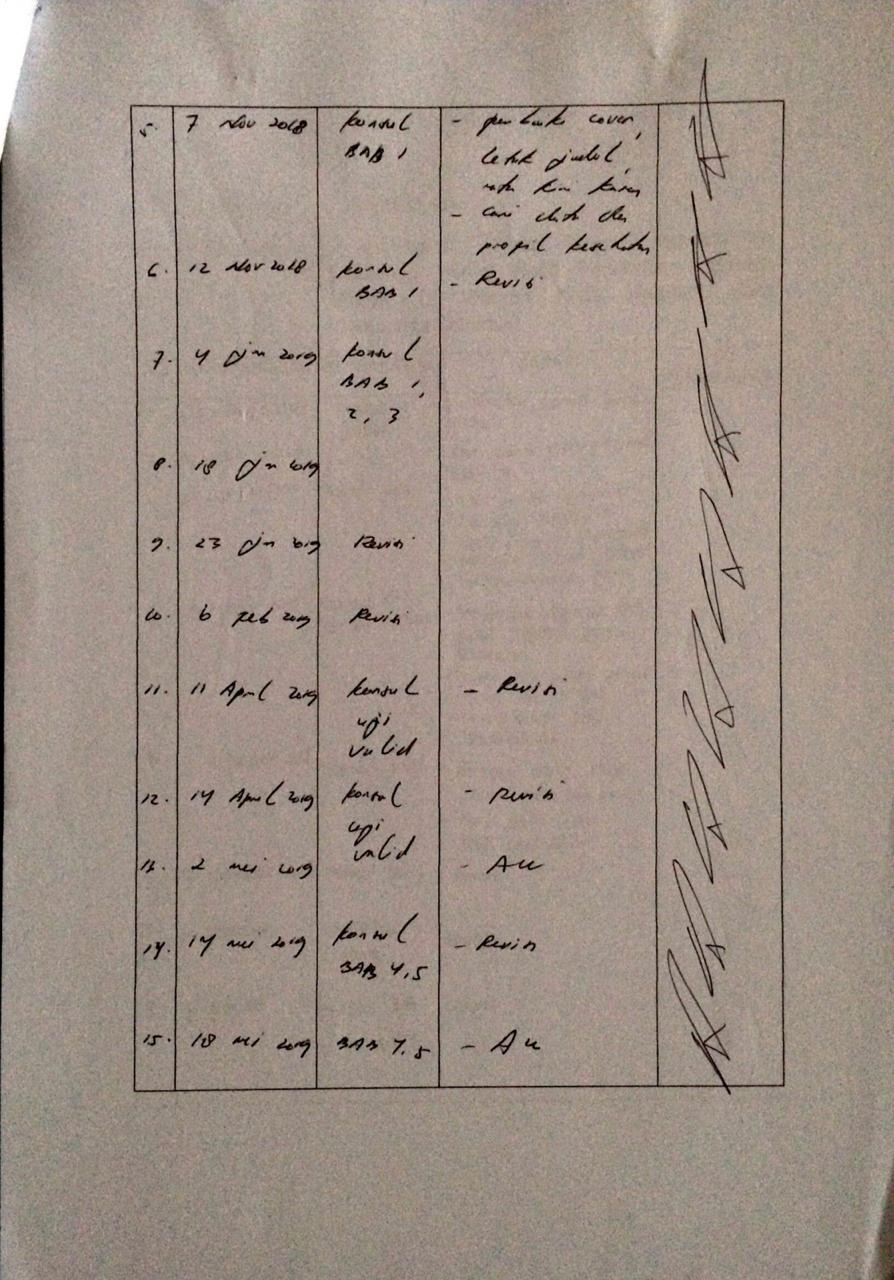 5. 7 Nov 2018 Konsul - perbaiki cover,
BAB 1 letak judul,
kiri kanan
- cari data dr
profil kesehatan
6. 12 Nov 2018 Konsul - Revisi
BAB 1
7. 4 Jan 2019 Konsul
BAB 1,
2, 3
8. 18 Jan 2019
9. 23 Jan 2019 Revisi
10. 6 Feb 2019 Revisi
11. 11 April 2019 Konsul - Revisi
uji
valid
12. 14 April 2019 Konsul - Revisi
uji
valid
13. 2 mei 2019 - Acc
14. 14 mei 2019 Konsul - Revisi
BAB 4,5
15. 18 mei 2019 BAB 4,5 - Acc